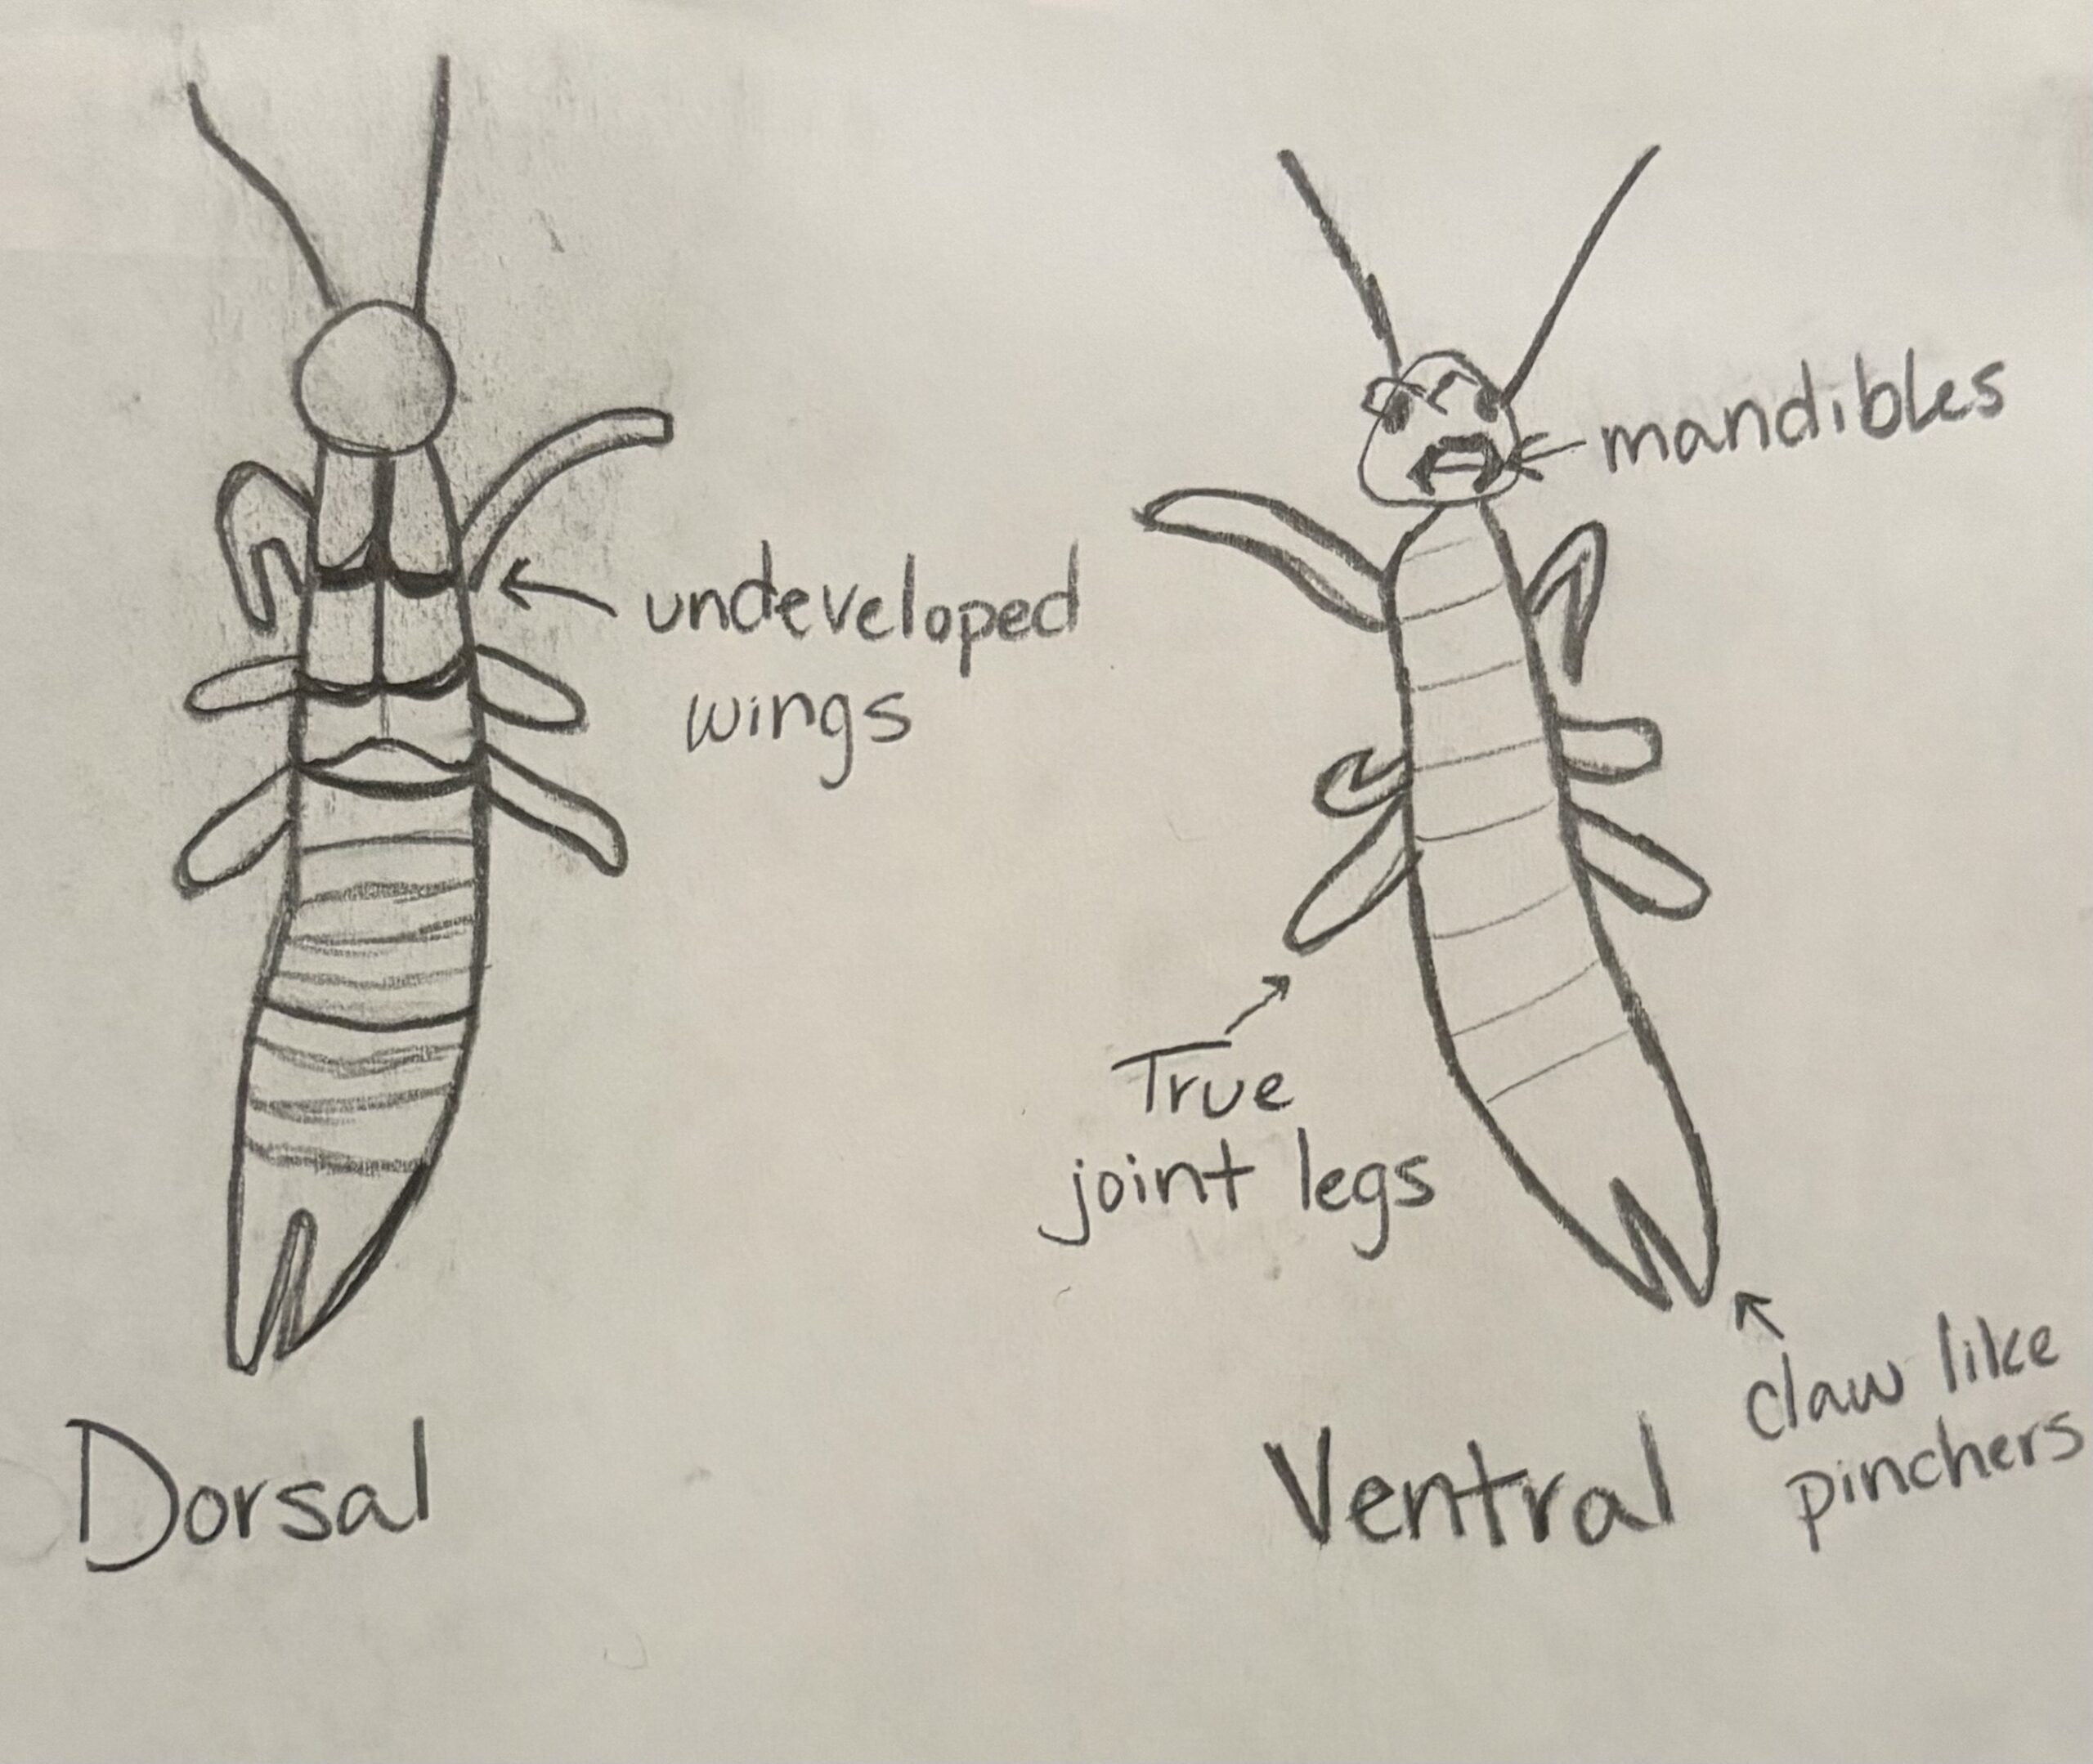 undeveloped
wings
Dorsal
mandibles
True
joint legs
claw like
pinchers
Ventral